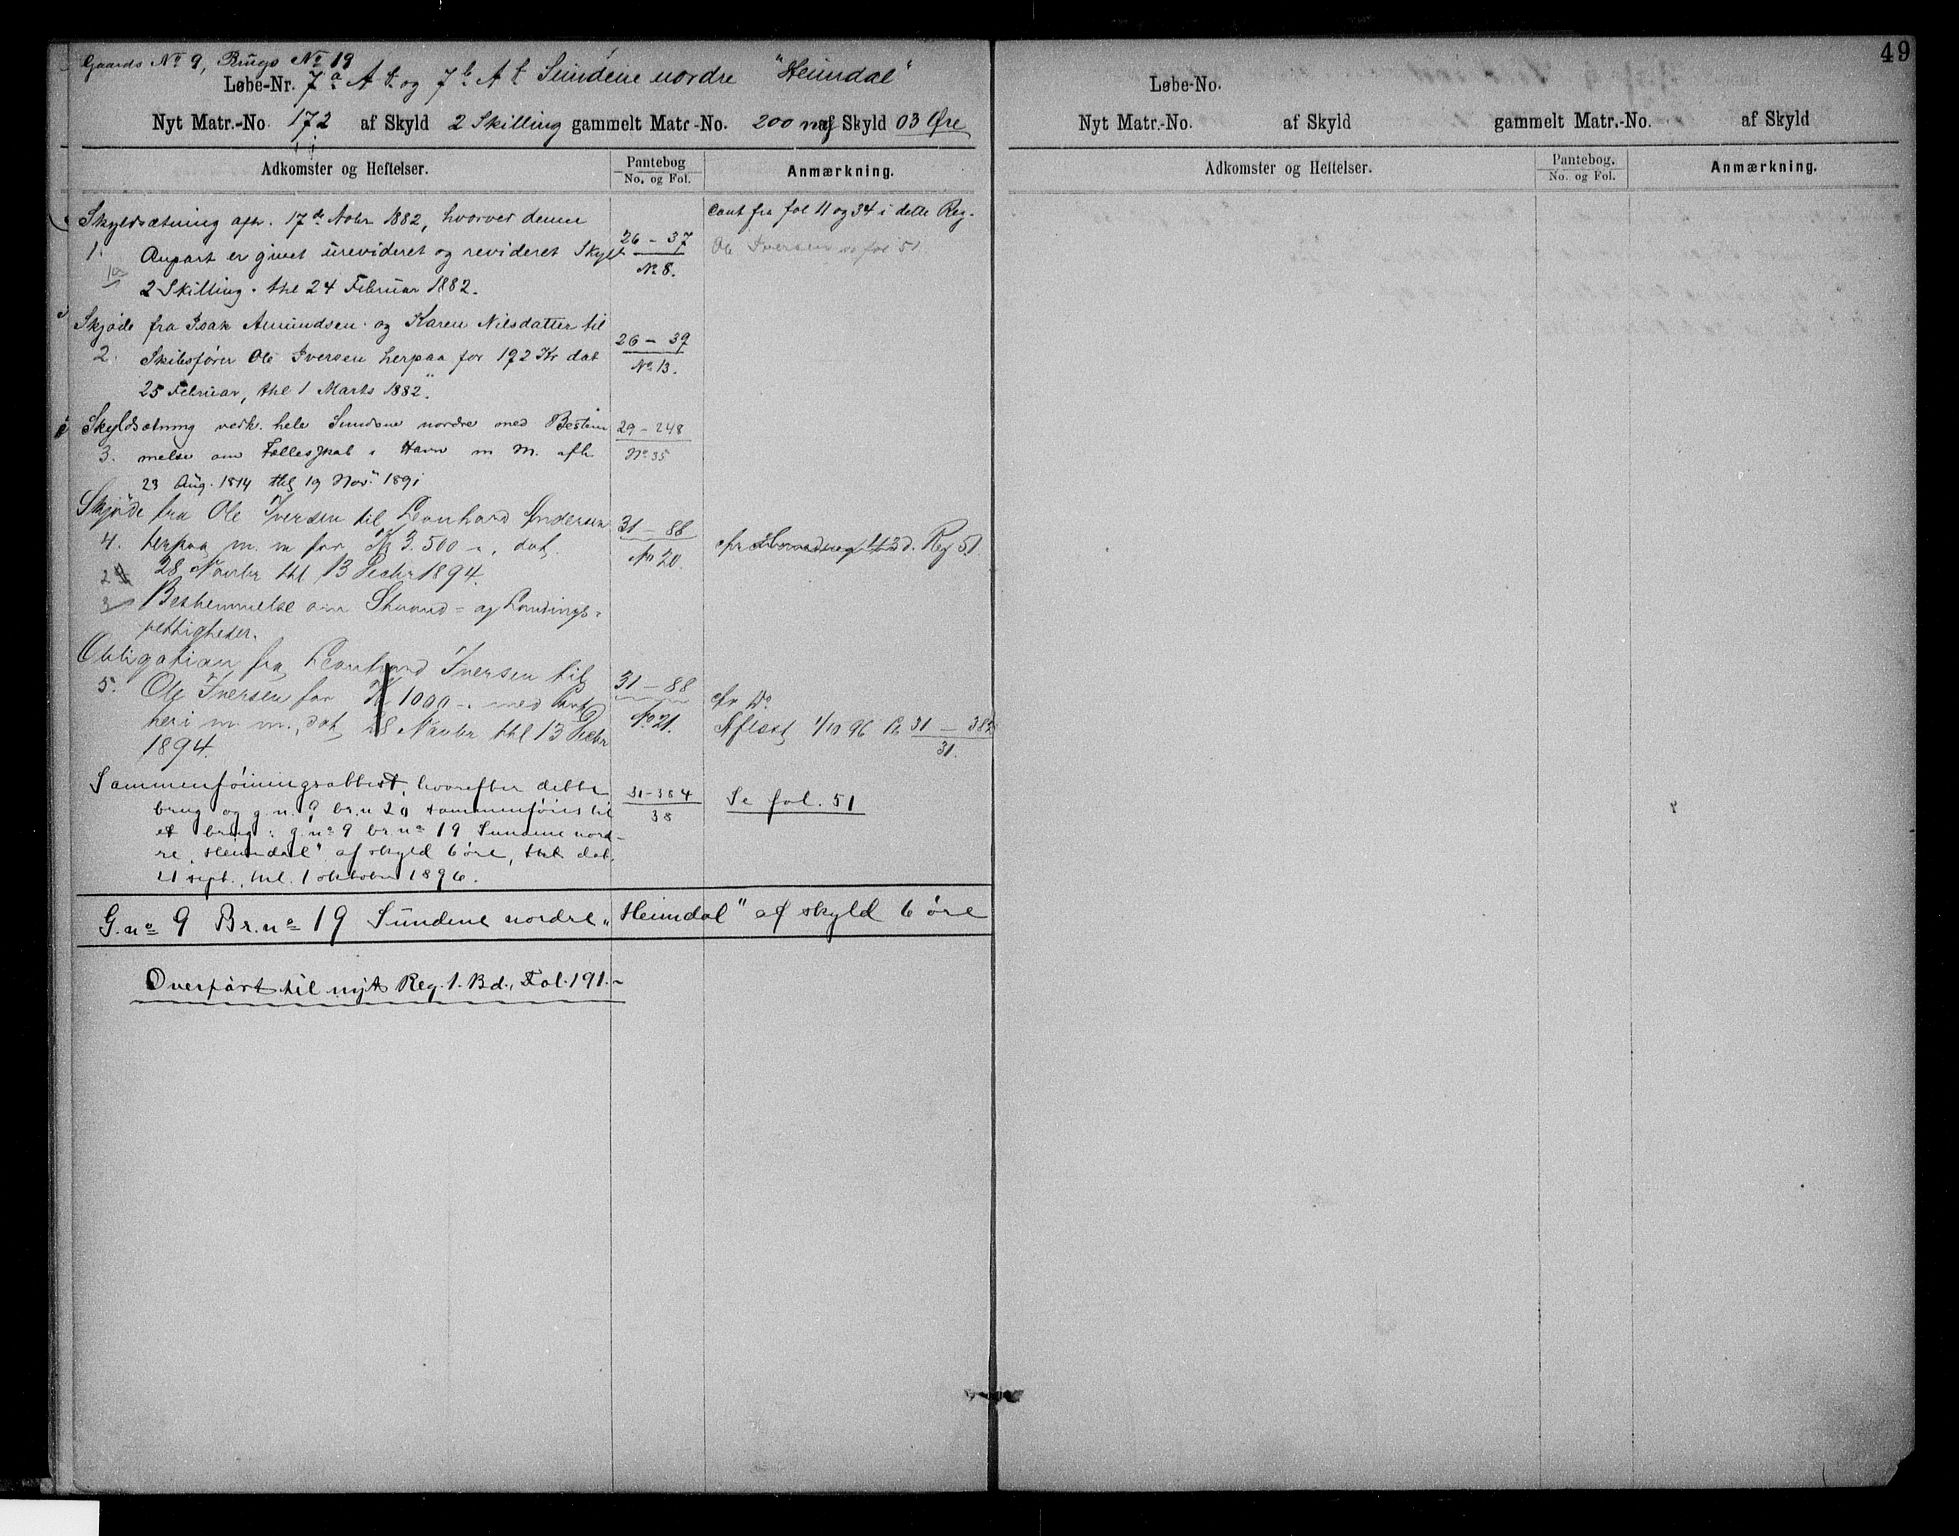 49
Gaards No 9, Brugs No 19
Løbe-Nr. 7a A t og 7b A t Sundene nordre "Heimdal"
Nyt Matr.-No 172 af Skyld 2 Skilling gammelt Matr-No. 200 af Skyld 03 Øre
Adkomster og Heftelser. Pantebog No. og Fol. Anmærkning.
Skyldsætning afh. 17de Nobr 1882, hvorved denne
1. Anpart er givet urevideret og revideret Skyld
2 Skilling. thl 24 Februar 1882.
26 - 37
No 8.
fra fol 11 og 34 i dette Reg.
Ole Iversen fol 51
Skjøde fra Isak Amundsen og Karen Nilsdatter til
2. Skibsfører Ole Iversen herpaa for 192 Kr dat
25 Februar, thl 1 Marts 1882.
26 - 39
No 13.
Skyldsætning vedk. hele Sundene nordre med Bestem
3. melse om Fællesskab i Havn m M. afh.
23 Aug. 1874 thl 19 Nov. 1891
29 - 248
No 35
Skjøde fra Ole Iversen til Leonhard Andersen
4. herpaa m. m for Kr 3.500 -, dat.
28 Novbr thl 13 Decbr 1894.
Bestemmelse om Strand- og Landings-
rettigheder.
31 - 88
No 20.
d. Reg 51
Obligation fra Leonhard Iversen til
5. Ole Iversen for Kr 1000 -. med Pant
heri m m., dat 28 Novbr thl 13 Decbr
1894.
31 - 88
No 21.
Do
Aflæst 1/10 96 Pb 31 - 382
31.
Sammenføiningsattest, hvorefter dette
brug og g.n. 9 br.n 20 sammenføies til
et brug: g.no 9 br.no 19 Sundene nord-
re, "Heimdal" af skyld 6 øre, dat.
21 sept., thl. 1 oktober 1896.
31-384
38
Se fol. 51
G.no 9 Br.no 19 Sundene nordre "Heimdal" af skyld 6 øre
Overført til nyt Reg. 1. Bd., Fol. 191.-
Løbe-No.
Nyt Matr.-No. af Skyld gammelt Matr.-No. af Skyld
Adkomster og Heftelser. Pantebog. No. og Fol. Anmærkning.